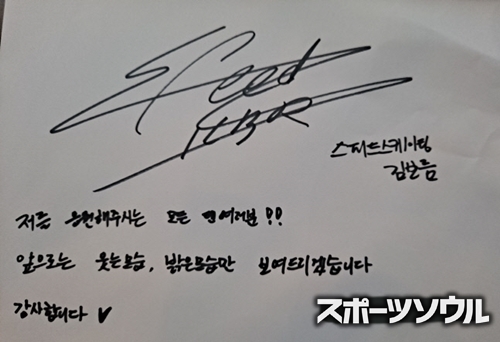 스피드스케이팅
김보름
저를 응원해주시는 모든 팬여러분!!
앞으로는 웃는모습, 밝은모습만 보여드리겠습니다
감사합니다
スポーツソウル